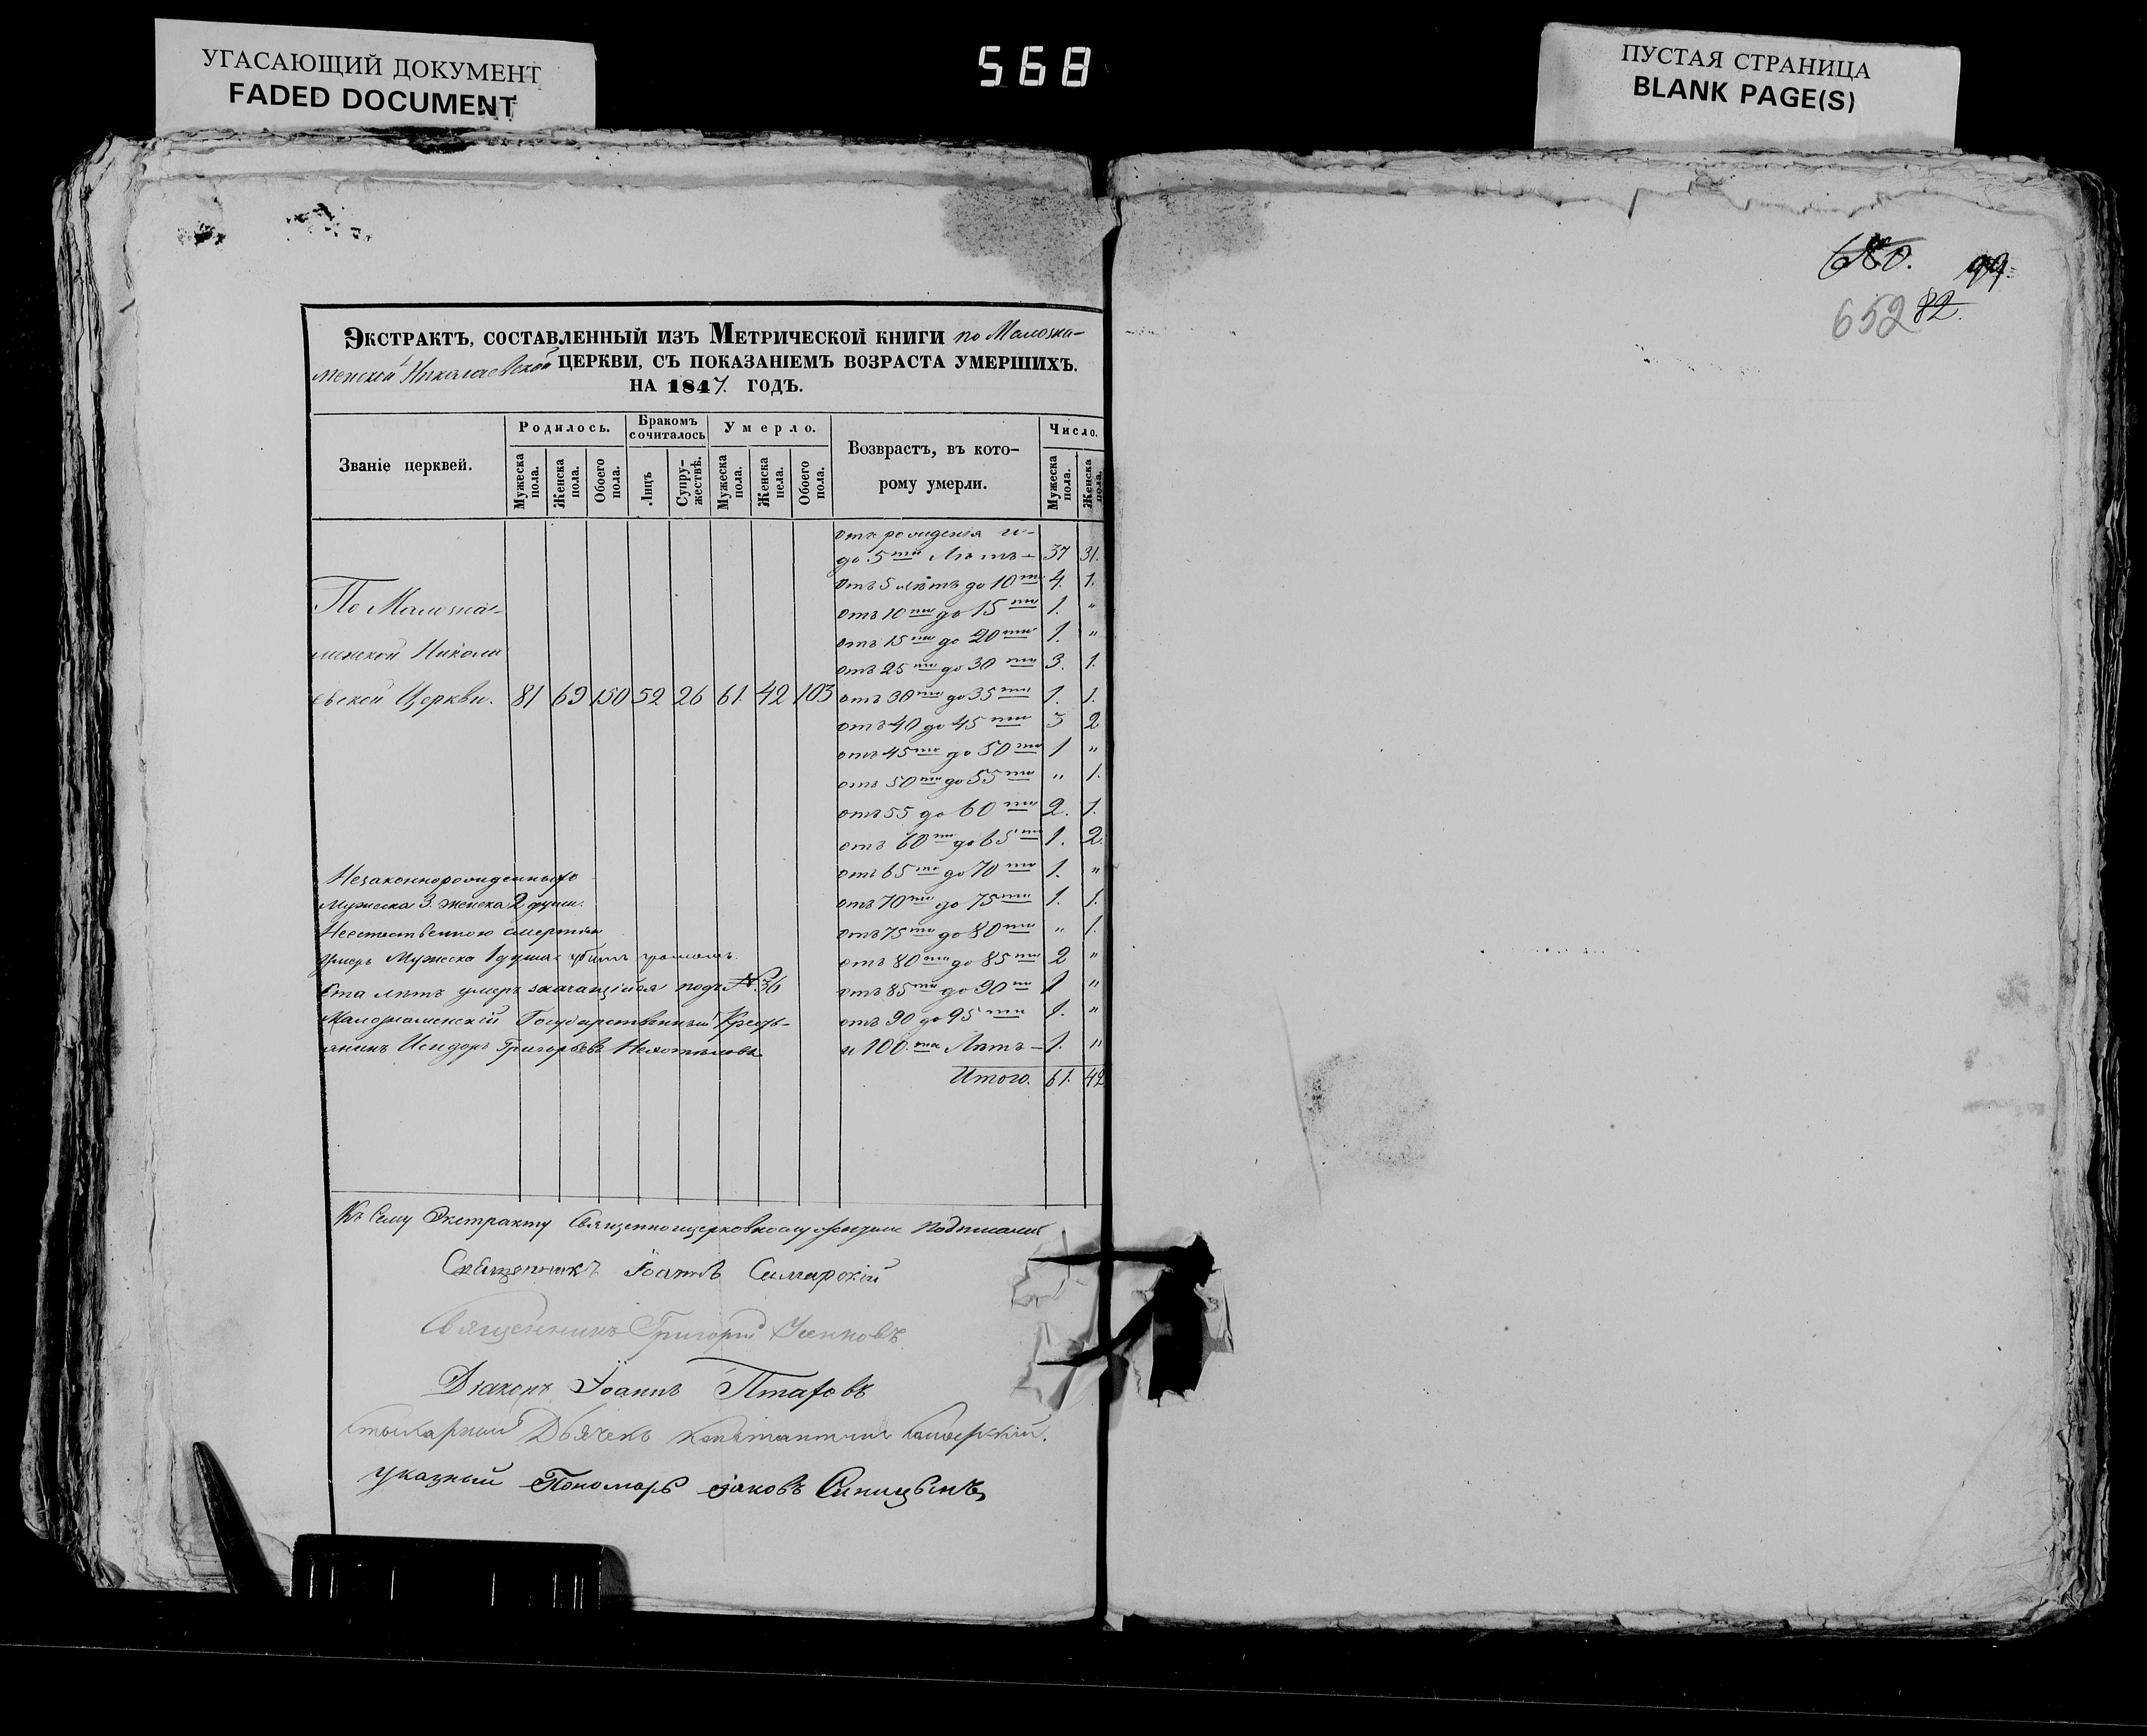 УГАСАЮЩИЙ ДОКУМЕНТ
FADED DOCUMENT
568
ПУСТАЯ СТРАНИЦА
BLANK PAGE(S)
680. 99.
652 82.
Экстрактъ, составленный изъ Метрической книги по Малозна-
менской Николаевской церкви, съ показаніемъ возраста умершихъ.
на 1847. годъ.
Званіе церквей.
Родилось.
Бракомъ сочиталось
Умерло.
Возврастъ, въ кото-
рому умерли.
Число.
Мужеска пола.
Женска пола.
Обоего пола.
Лицъ
Супру-жествъ.
Мужеска пола.
Женска пела.
Обоего пола.
Мужеска пола.
Женска пола.
отъ рожденія и-
до 5ти Лѣтъ - 37 31.
отъ 5 лѣтъ до 10ти 4. 1.
По Малозна-
отъ 10ти до 15ти 1. "
отъ 15ти до 20ти 1. "
менской Никола
отъ 25ти до 30ти 3. 1.
евской Церкви. 81 69 150 52 26 61. 42 103 отъ 30ти до 35ти 1. 1.
отъ 40 до 45ти 3 2
отъ 45ти до 50ти 1 "
отъ 50ти до 55ти " 1.
отъ 55 до 60ти 2. 1.
отъ 60ти до 65ти 1. 2.
отъ 65ти до 70ти 1. "
Незаконнорожденныхъ
Мужеска 3. женска 2 души.
отъ 70ти до 75ти 1. 1.
Неестественною смертью
отъ 75ти до 80ти " 1.
умеръ Мужеска 1 душа: убитъ громомъ.
отъ 80ти до 85ти 2 "
Ста лѣтъ умеръ значащійся подъ № 36
отъ 85ти до 90ти 1 "
Малознаменскій Государственный Кресть-
отъ 90 до 95ти 1. "
янинъ Исидоръ Григорьевъ
и 100.та Лѣтъ - 1. "
Итого. 61. 42
Къ Сему Экстракту Священноцерковнослужители Подписались
Священникъ Іоаннъ Самарскій
Священникъ Григорій
Діаконъ Іоаннъ Птаховъ
Стихарный Дьячекъ Константинъ
указный Пономарь Яковъ Синицынъ